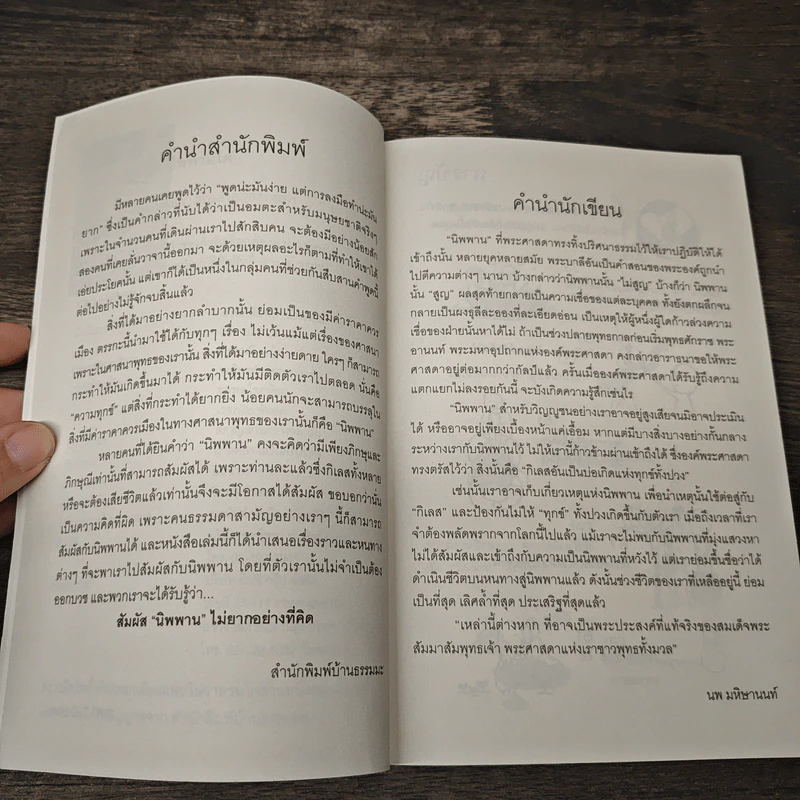 คำนำสำนักพิมพ์
มีหลายคนเคยพูดไว้ว่า “พูดน่ะมันง่าย แต่การลงมือทำน่ะมัน
ยาก” ซึ่งเป็นคำกล่าวที่นับได้ว่าเป็นอมตะสำหรับมนุษยชาติจริงๆ
เพราะในจำนวนคนที่เดินผ่านเราไปสักสิบคน จะต้องมีอย่างน้อยสัก
สองคนที่เคยลั่นวาจานี้ออกมา จะด้วยเหตุผลอะไรก็ตามที่ทำให้เขาได้
เอ่ยประโยคนั้น แต่เขาก็ได้เป็นหนึ่งในกลุ่มคนที่ช่วยกันสืบสานคำพูดนี้
ต่อไปอย่างไม่รู้จักจบสิ้นแล้ว
สิ่งที่ได้มาอย่างยากลำบากนั้น ย่อมเป็นของมีค่าราคาควร
เมือง ตรรกะนี้นำมาใช้ได้กับทุกๆ เรื่อง ไม่เว้นแม้แต่เรื่องของศาสนา
เพราะในศาสนาพุทธของเรานั้น สิ่งที่ได้มาอย่างง่ายดาย ใครๆ ก็สามารถ
กระทำให้มันเกิดขึ้นมาได้ กระทำให้มันมีติดตัวเราไปตลอด นั่นคือ
“ความทุกข์” แต่สิ่งที่กระทำได้ยากยิ่ง น้อยคนนักจะสามารถบรรลุใน
สิ่งที่มีค่าราคาควรเมืองในทางศาสนาพุทธของเรานั้นก็คือ “นิพพาน”
หลายคนที่ได้ยินคำว่า “นิพพาน” คงจะคิดว่ามีเพียงภิกษุและ
ภิกษุณีเท่านั้นที่สามารถสัมผัสได้ เพราะท่านละแล้วซึ่งกิเลสทั้งหลาย
หรือจะต้องเสียชีวิตแล้วเท่านั้นจึงจะมีโอกาสได้สัมผัส ขอบอกว่านั่น
เป็นความคิดที่ผิด เพราะคนธรรมดาสามัญอย่างเราๆ นี้ก็สามารถ
สัมผัสกับนิพพานได้ และหนังสือเล่มนี้ก็ได้นำเสนอเรื่องราวและหนทาง
ต่างๆ ที่จะพาเราไปสัมผัสกับนิพพาน โดยที่ตัวเรานั้นไม่จำเป็นต้อง
ออกบวช และพวกเราจะได้รับรู้ว่า...
สัมผัส “นิพพาน” ไม่ยากอย่างที่คิด
สำนักพิมพ์บ้านธรรมมะ
คำนำนักเขียน
“นิพพาน” ที่พระศาสดาทรงทิ้งปริศนาธรรมไว้ให้เราปฏิบัติให้ได้
เข้าถึงนั้น หลายยุคหลายสมัย พระบาลีอันเป็นคำสอนของพระองค์ถูกนำ
ไปตีความต่างๆ นานา บ้างกล่าวว่านิพพานนั้น “ไม่สูญ” บ้างก็ว่า นิพพาน
นั้น “สูญ” ผลสุดท้ายกลายเป็นความเชื่อของแต่ละบุคคล ทั้งยังตกผลึกจน
กลายเป็นผงธุลีละอองที่ละเอียดอ่อน เป็นเหตุให้ผู้หนึ่งผู้ใดก้าวล่วงความ
เชื่อของฝ่ายนั้นหาได้ไม่ ถ้าเป็นช่วงปลายพุทธกาลก่อนเริ่มพุทธศักราช พระ
อานนท์ พระมหาอุปถากแห่งองค์พระศาสดา คงกล่าวอาราธนาขอให้พระ
ศาสดาอยู่ต่อมากกว่ากัลป์แล้ว ครั้นเมื่อองค์พระศาสดาได้รับรู้ถึงความ
แตกแยกไม่ลงรอยกันนี้ จะบังเกิดความรู้สึกเช่นไร
“นิพพาน” สำหรับวิญญูชนอย่างเราอาจอยู่สูงเสียจนมิอาจประเมิน
ได้ หรืออาจอยู่เพียงเบื้องหน้าแค่เอื้อม หากแต่มีบางสิ่งบางอย่างกั้นกลาง
ระหว่างเรากับนิพพานไว้ ไม่ให้เรานี้ก้าวข้ามผ่านเข้าถึงได้ ซึ่งองค์พระศาสดา
ทรงตรัสไว้ว่า สิ่งนั้นคือ “กิเลสอันเป็นบ่อเกิดแห่งทุกข์ทั้งปวง”
เช่นนั้นเราอาจเก็บเกี่ยวเหตุแห่งนิพพาน เพื่อนำเหตุนั้นใช้ต่อสู้กับ
“กิเลส” และป้องกันไม่ให้ “ทุกข์” ทั้งปวงเกิดขึ้นกับตัวเรา เมื่อถึงเวลาที่เรา
จำต้องพลัดพรากจากโลกนี้ไปแล้ว แม้เราจะไม่พบกับนิพพานที่มุ่งแสวงหา
ไม่ได้สัมผัสและเข้าถึงกับความเป็นนิพพานที่หวังไว้ แต่เราย่อมขึ้นชื่อว่าได้
ดำเนินชีวิตบนหนทางสู่นิพพานแล้ว ดังนั้นช่วงชีวิตของเราที่เหลืออยู่นี้ ย่อม
เป็นที่สุด เลิศล้ำที่สุด ประเสริฐที่สุดแล้ว
“เหล่านี้ต่างหาก ที่อาจเป็นพระประสงค์ที่แท้จริงของสมเด็จพระ
สัมมาสัมพุทธเจ้า พระศาสดาแห่งเราชาวพุทธทั้งมวล”
นพ มหิษานนท์